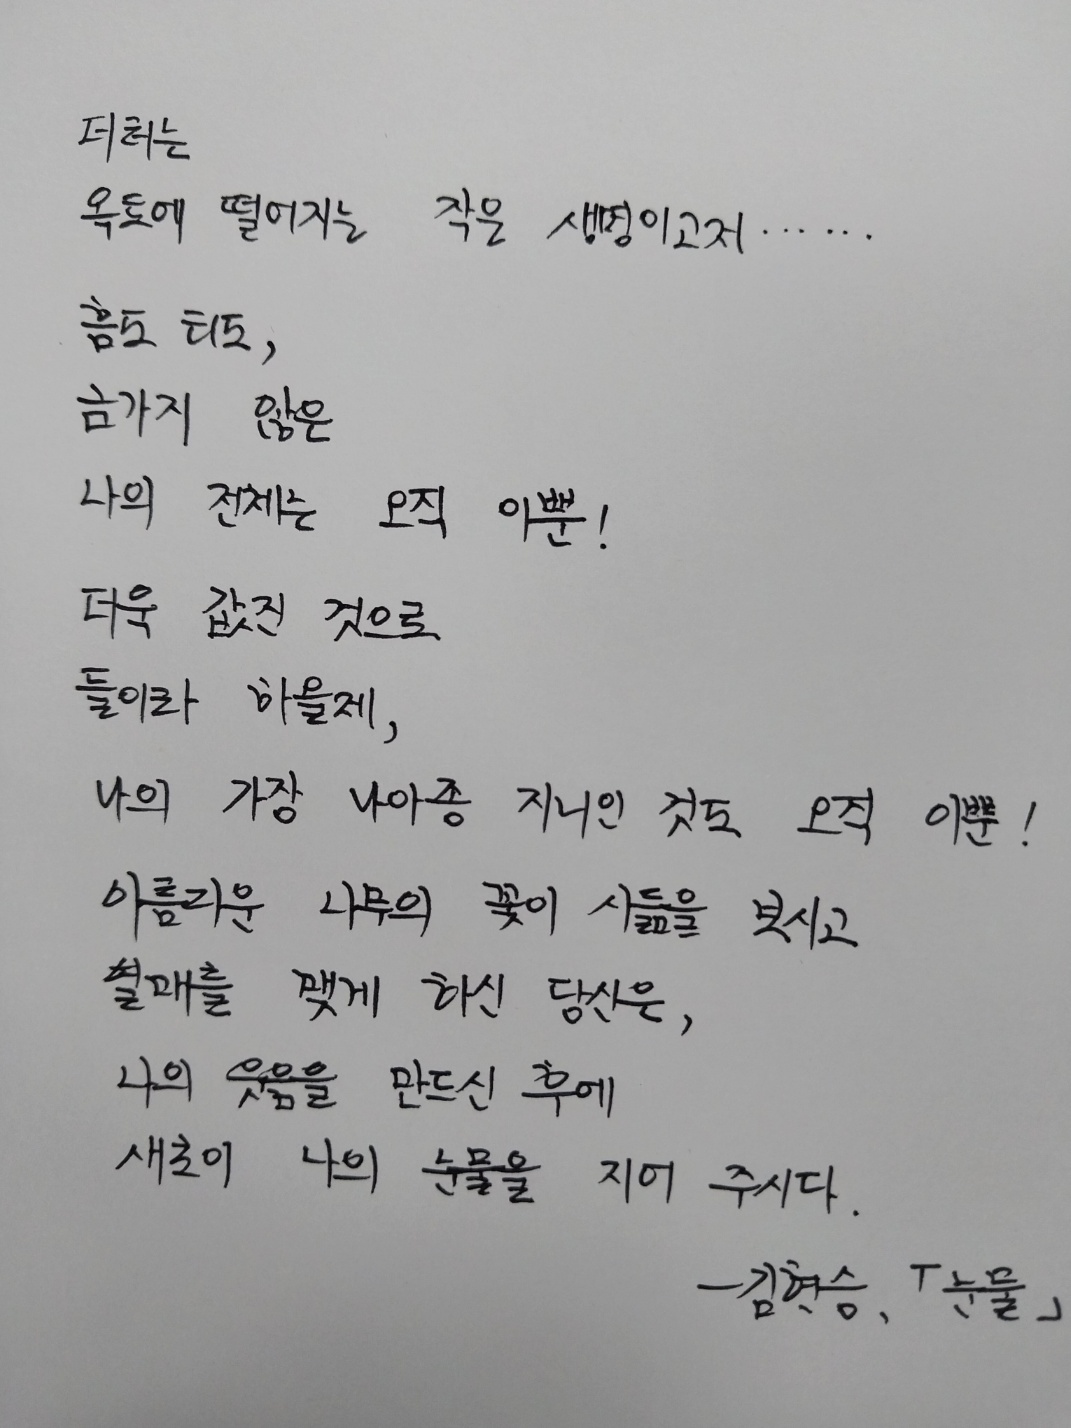 더러는
옥토에 떨어지는 작은 생명이고저......
흠도 티도,
금가지 않은
나의 전체는 오직 이뿐!
더욱 값진 것으로
들이라 하올제,
나의 가장 나아종 지니인 것도 오직 이뿐!
아름다운 나무의 꽃이 시듦을 보시고
열매를 맺게 하신 당신은,
나의 웃음을 만드신 후에
새로이 나의 눈물을 지어 주시다.
-김현승, 「눈물」